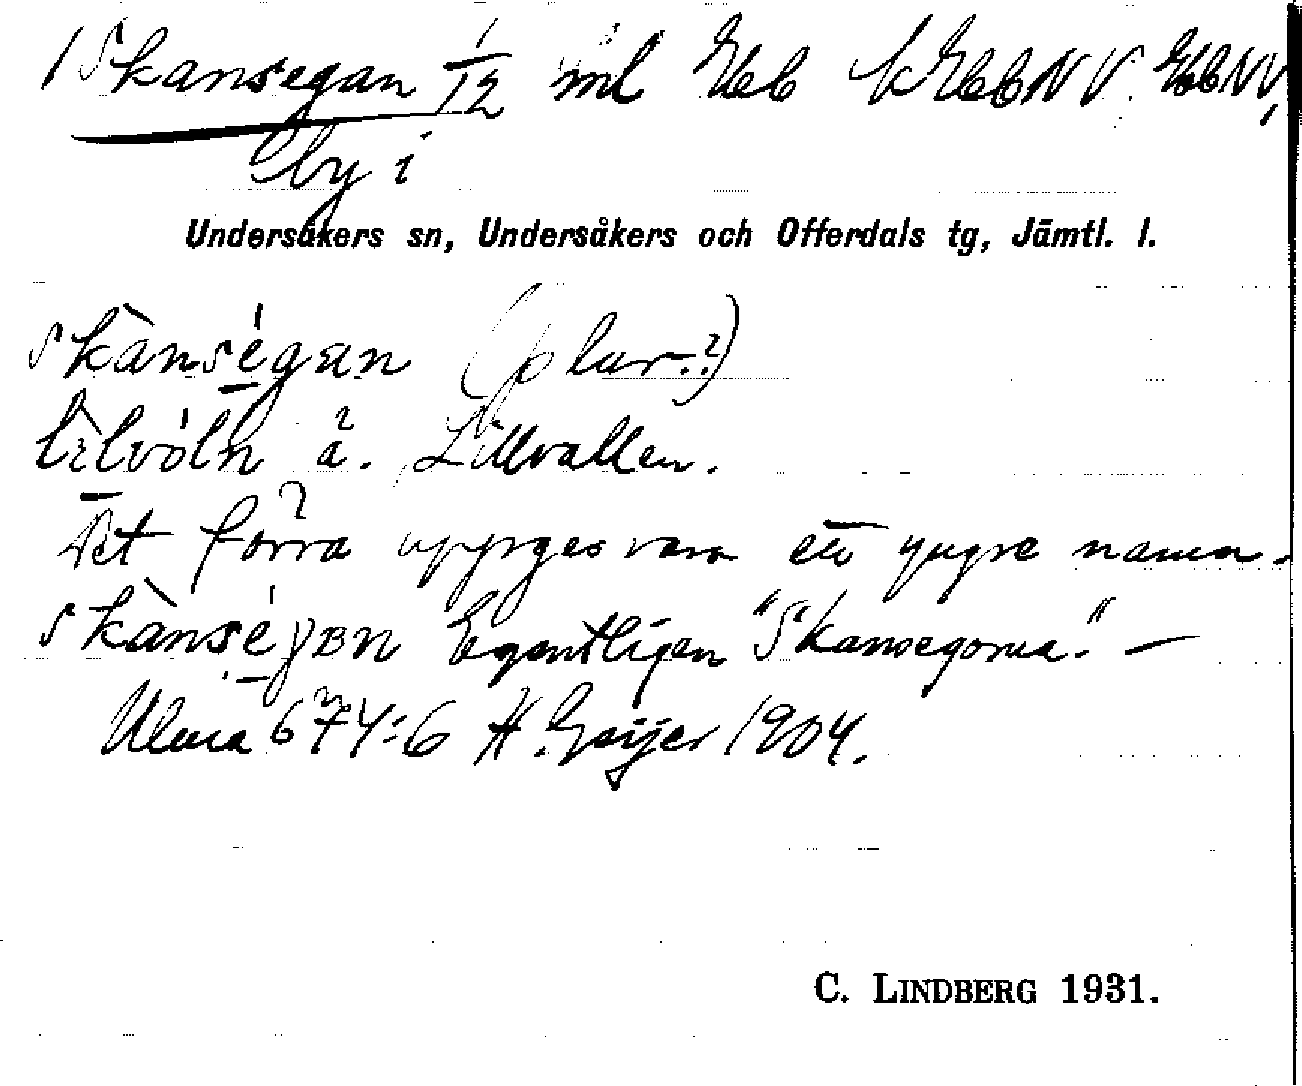 1 Skansegan 1/12 mil
by i
Undersåkers sn, Undersåkers och Offerdals tg, Jämtl. l.
skànségan (plur.?)
å. Lillvallen.
Det förra uppges vara ett yngre namn.
Egentligen "Skansegorna." —
Ulma 674:6 H. Geijer 1904.
C. LINDBERG 1931.